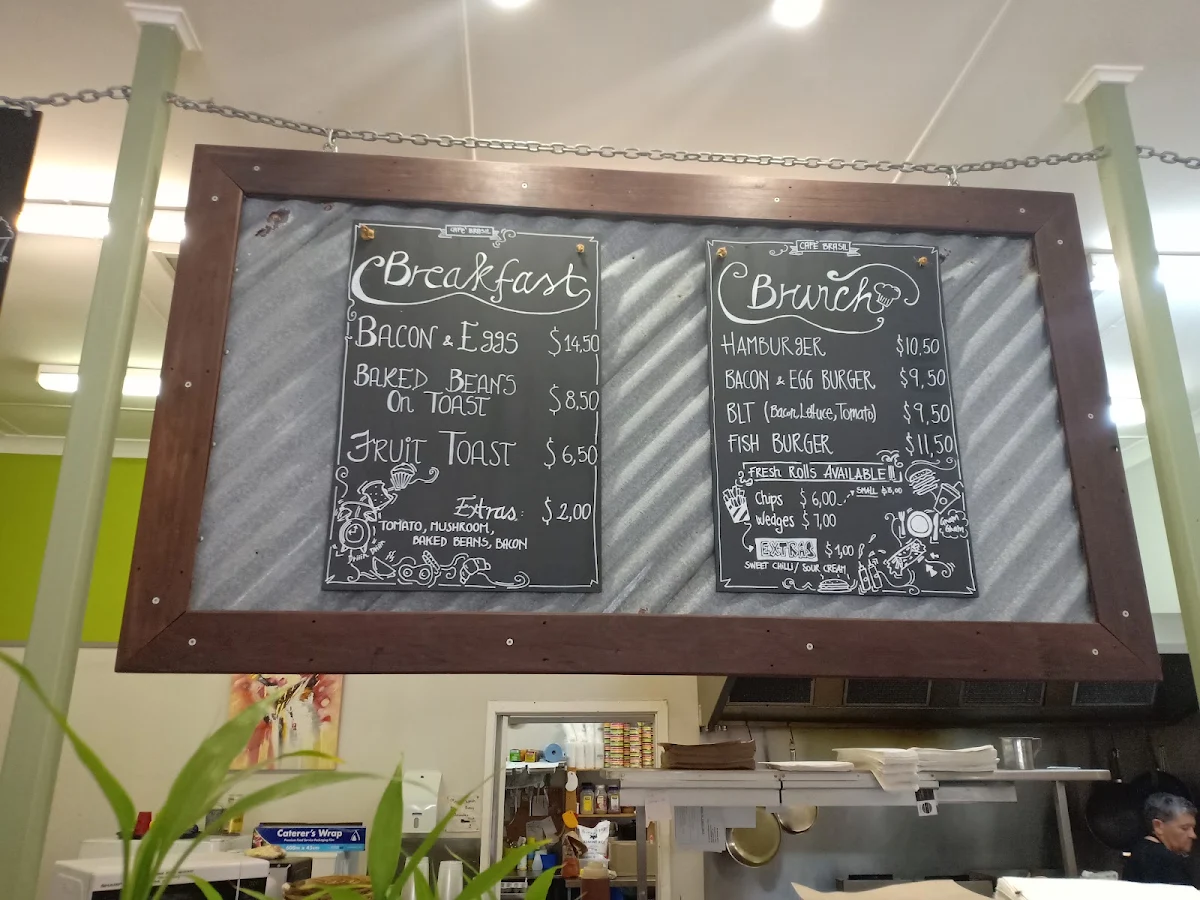 CAFE BRASIL
Breakfast
BACON & EggS $14,50
BAKED BEANS
On TOAST $8,50
FRUIT TOAST $6,50
Extras: $2,00
TOMATO, MUSHROOM,
BAKED BEANS, BACON
CAFE BRASIL
Brunch
HAMBURGER $10,50
BACON & EGG BURGER $9,50
BLT (Bacon, Lettuce, Tomato) $9,50
FISH BURGER $11,50
FRESH ROLLS AVAILABLE!!
Chips $6,00
Wedges $7,00
EXTRAS $1,00
SWEET CHILLI/ SOUR CREAM
Caterer's Wrap